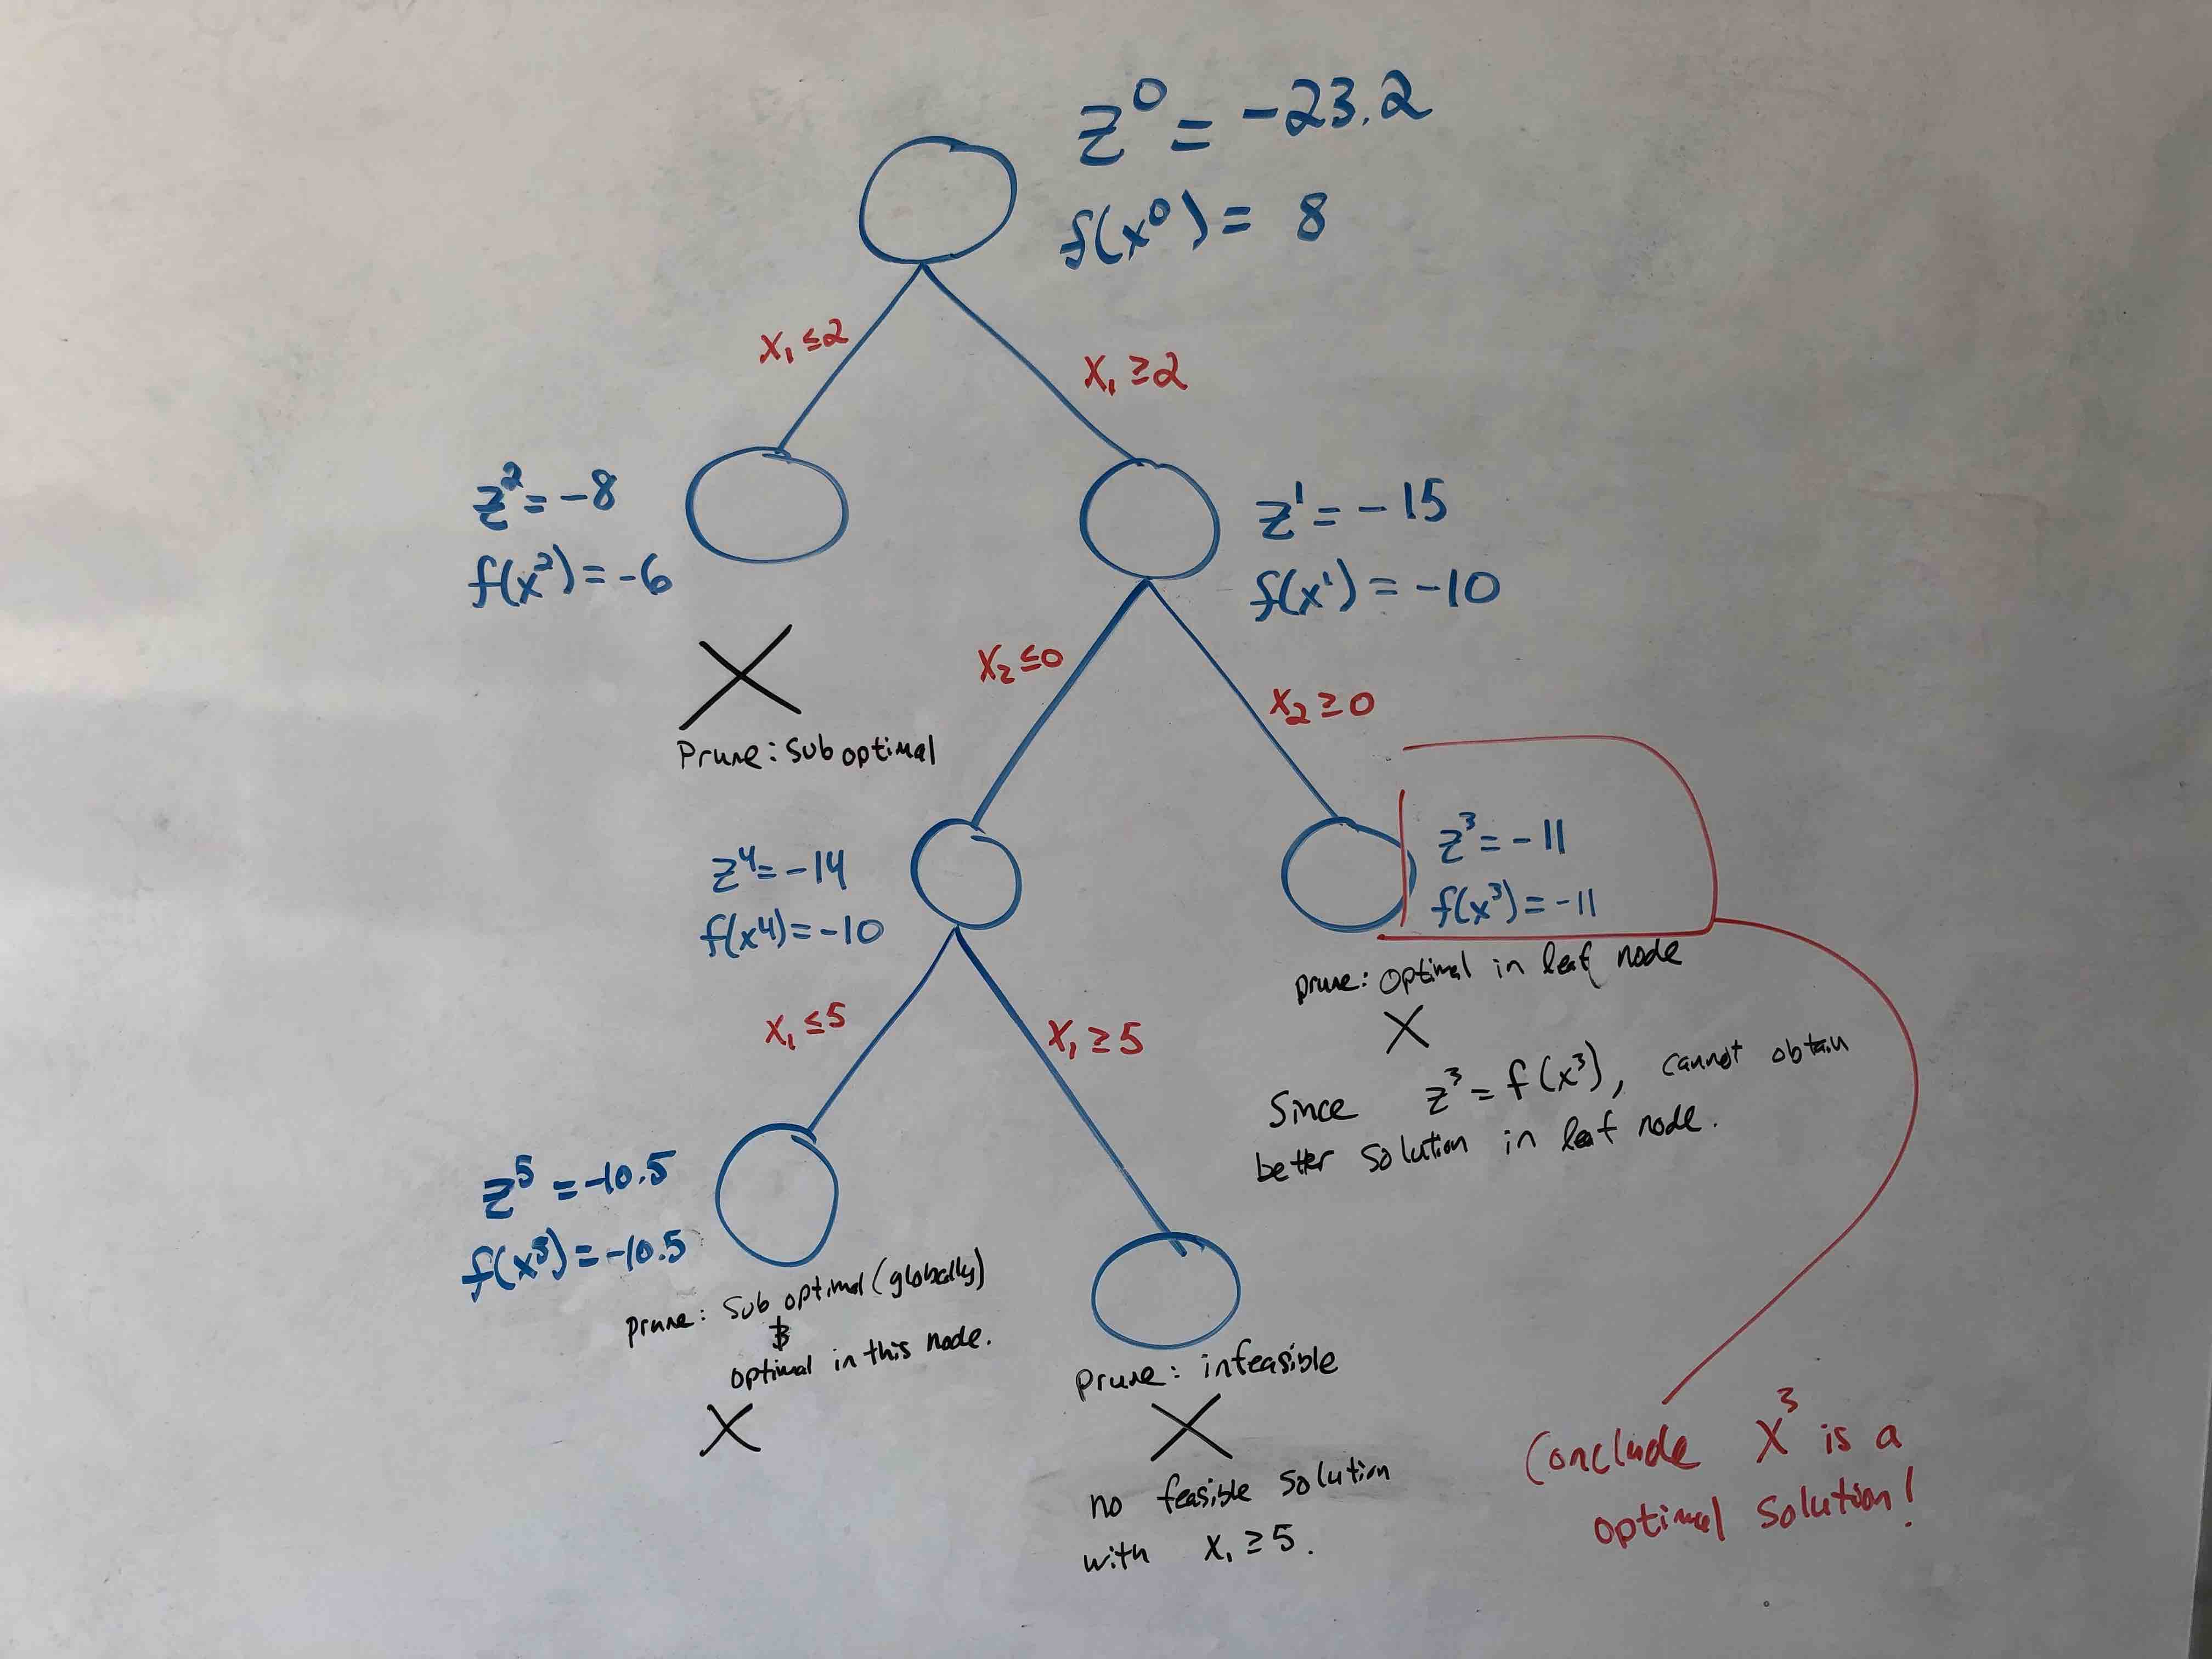 z⁰ = -23.2
f(x⁰) = 8
x₁ ≤ 2
x₁ ≥ 2
z² = -8
f(x²) = -6
z¹ = -15
f(x¹) = -10
Prune: Suboptimal
x₂ ≤ 0
x₂ ≥ 0
z⁴ = -14
f(x⁴) = -10
z³ = -11
f(x³) = -11
prune: optimal in leaf node
Since z³ = f(x³), cannot obtain
better solution in leaf node.
x₁ ≤ 5
x₁ ≥ 5
z⁵ = -10.5
f(x⁵) = -10.5
prune: Sub optimal (globally)
&
optimal in this node.
Prune: infeasible
no feasible solution
with x₁ ≥ 5.
Conclude x³ is a
optimal solution!